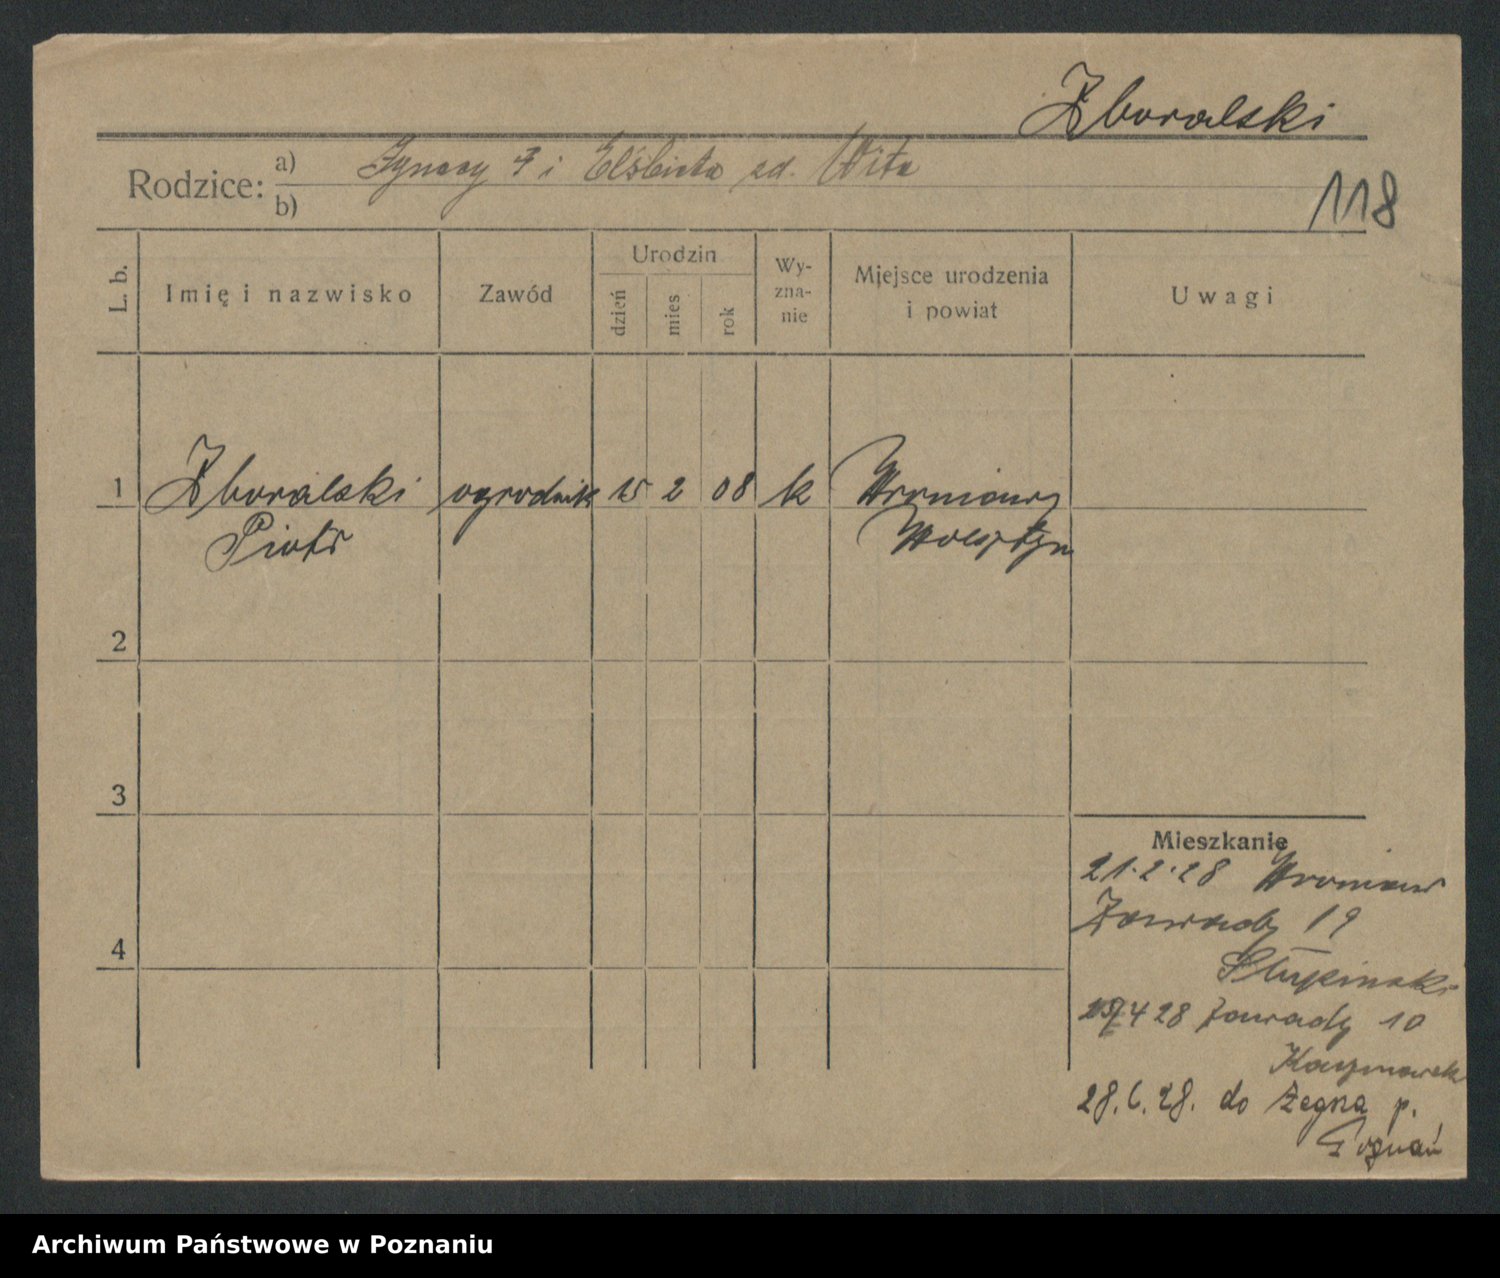 Zboralski
Rodzice: a) Ignacy i Elżbieta zd. Wita
b)
118
L. b. Imię i nazwisko Zawód Urodzin dzień mies rok Wy-zna-nie Miejsce urodzenia i powiat Uwagi
1 Zboralski ogrodnik 15 2 08 k Wroniawy
Piotr Wolsztyn
2
3
Mieszkanie
21.2.28 Wroniaw
Zawady 19
4
Stupinski
4 28 Zawady 10
Kaczmarek
28.6.28. do Żegrza p.
Poznań
Archiwum Państwowe w Poznaniu